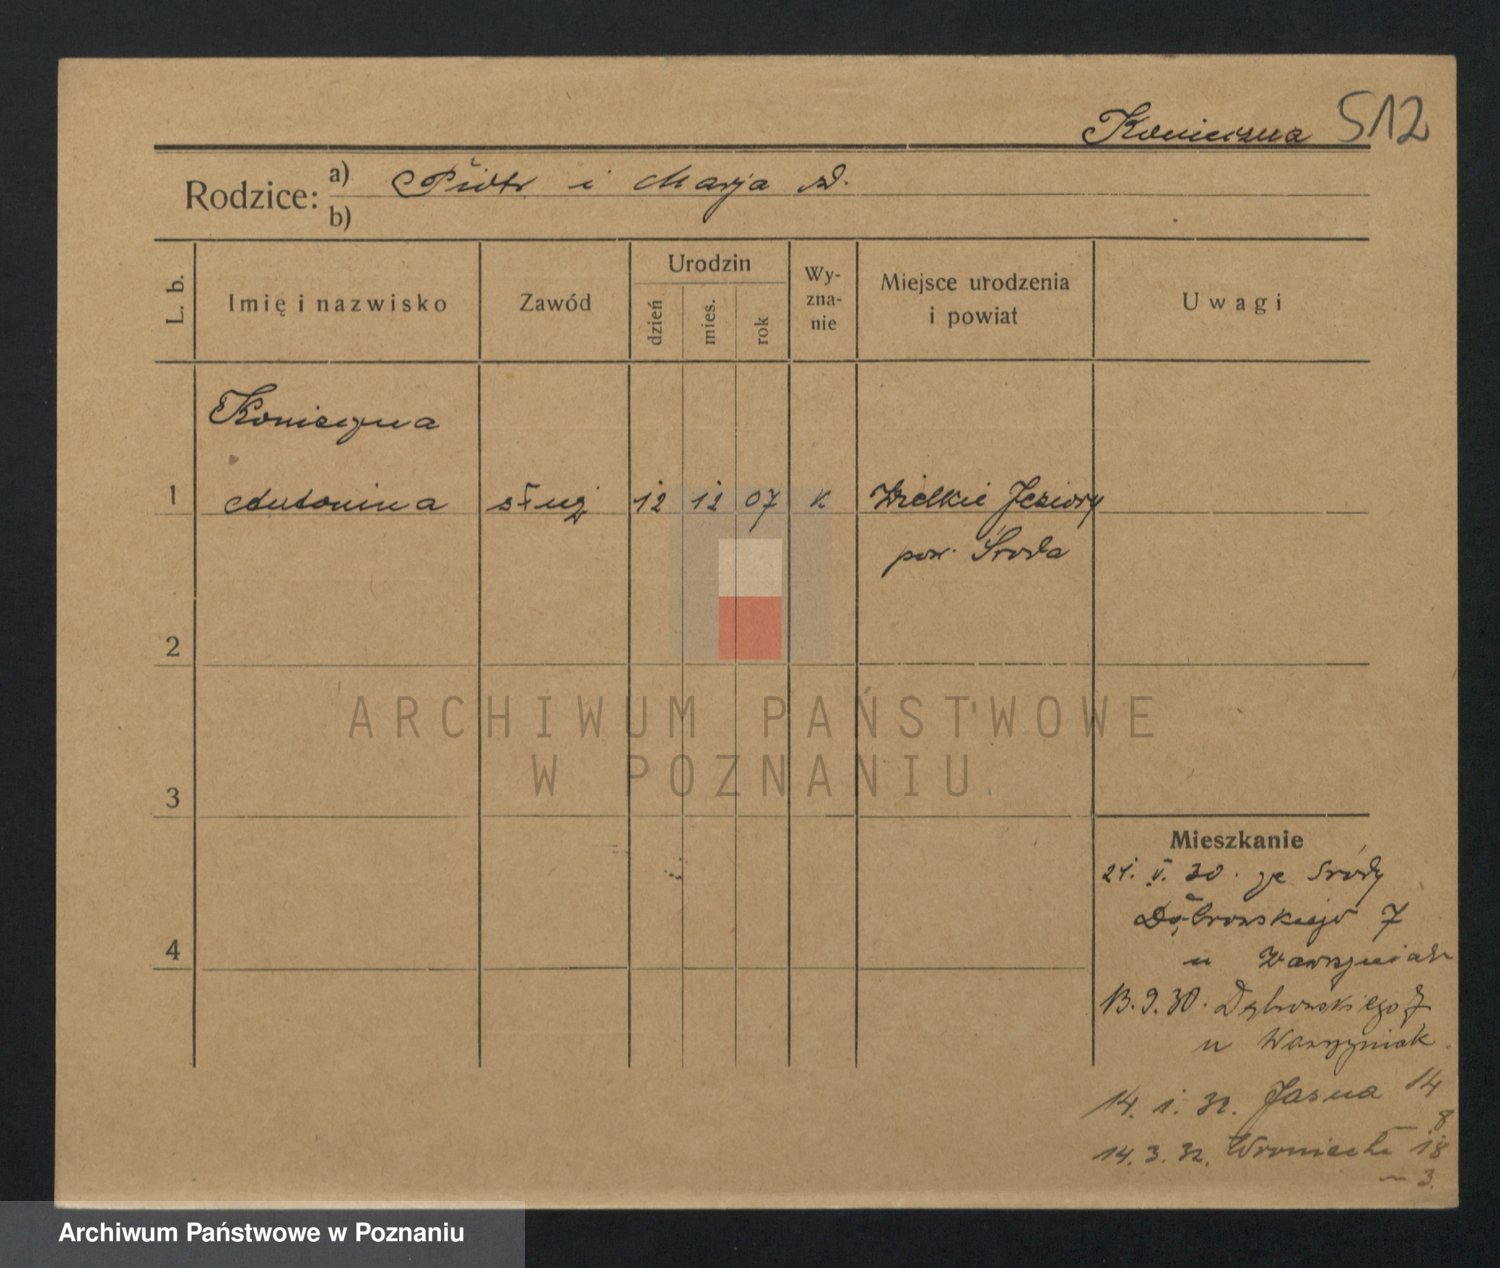 Konieczna 512
Rodzice: a) Piotr i Marja
b)
L. b.
Imię i nazwisko
Zawód
Urodzin
dzień
mies.
rok
Wy-
zna-
nie
Miejsce urodzenia
i powiat
Uwagi
Konieczna
1 Antonina służ 12 12 07 K Wielkie Jeziory
pow. Środa
2
3
4
Mieszkanie
21. V. 30. ze Środy
Dąbrowskiego 7
u Wawrzyniak
13. 9. 30. Dąbrowskiego 7
u Wawrzyniak
14. 1. 32. Jasna 14
8
14. 3. 32. Wroniecka 18
3.
ARCHIWUM PAŃSTWOWE
W POZNANIU
Archiwum Państwowe w Poznaniu